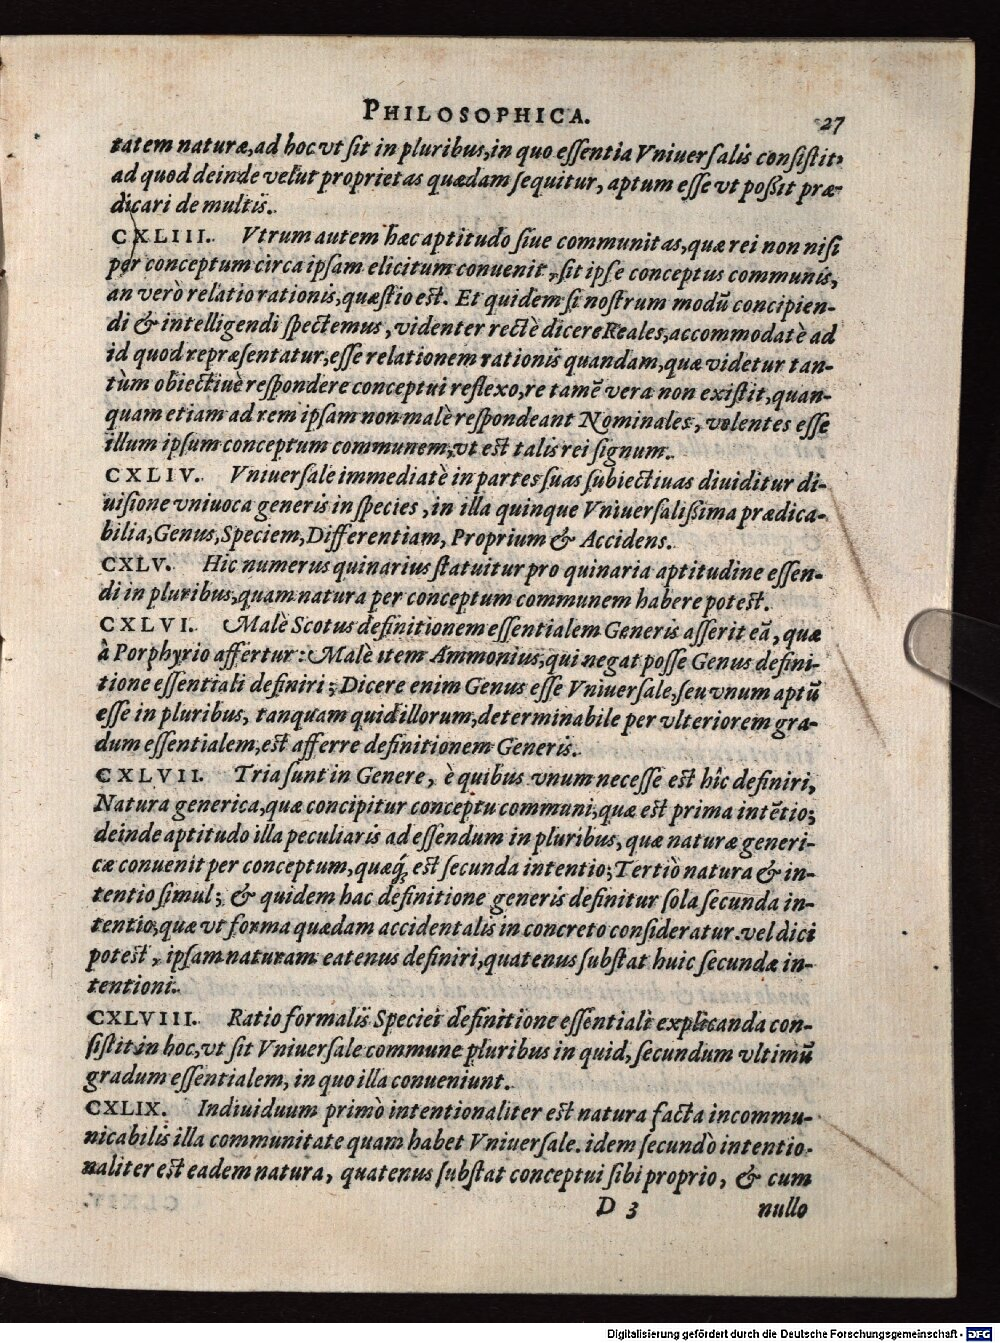 PHILOSOPHICA.
27
tatem naturæ, ad hoc vt ſit in pluribus, in quo eſſentia Vniuerſalis conſiſtit,
ad quod deinde velut proprietas quædam ſequitur, aptum eſſe vt poßit præ-
dicari de multis.
CXLIII. Vtrum autem hæc aptitudo ſiue communitas, quæ rei non niſi
per conceptum circa ipſam elicitum conuenit, ſit ipſe conceptus communis,
an verò relatio rationis, quæſtio eſt. Et quidem ſi noſtrum modū concipien-
di & intelligendi ſpectemus, videnter rectè dicere Reales, accommodatè ad
id quod repræſentatur, eſſe relationem rationis quandam, quæ videtur tan-
tùm obiectiuè reſpondere conceptui reflexo, re tamē vera non exiſtit, quan-
quam etiam ad rem ipſam non malè reſpondeant Nominales, volentes eſſe
illum ipſum conceptum communem, vt eſt talis rei ſignum.
CXLIV. Vniuerſale immediatè in partes ſuas ſubiectiuas diuiditur di-
uiſione vniuoca generis in ſpecies, in illa quinque Vniuerſalißima prædica-
bilia, Genus, Speciem, Differentiam, Proprium & Accidens.
CXLV. Hic numerus quinarius ſtatuitur pro quinaria aptitudine eſſen-
di in pluribus, quam natura per conceptum communem habere poteſt.
CXLVI. Malè Scotus definitionem eſſentialem Generis aſſerit eā, quæ
à Porphyrio affertur: Malè item Ammonius, qui negat poſſe Genus defini-
tione eſſentiali definiri; Dicere enim Genus eſſe Vniuerſale, ſeu vnum aptū
eſſe in pluribus, tanquam quid illorum, determinabile per vlteriorem gra-
dum eſſentialem, eſt afferre definitionem Generis.
CXLVII. Tria ſunt in Genere, è quibus vnum neceſſe eſt hîc definiri,
Natura generica, quæ concipitur conceptu communi, quæ eſt prima intētio;
deinde aptitudo illa peculiaris ad eſſendum in pluribus, quæ naturæ generi-
cæ conuenit per conceptum, quæq́; eſt ſecunda intentio; Tertiò natura & in-
tentio ſimul; & quidem hac definitione generis definitur ſola ſecunda in-
tentio, quæ vt forma quædam accidentalis in concreto conſideratur. vel dici
poteſt, ipſam naturam eatenus definiri, quatenus ſubſtat huic ſecundæ in-
tentioni.
CXLVIII. Ratio formalis Speciei definitione eſſentiali explicanda con-
ſiſtit in hoc, vt ſit Vniuerſale commune pluribus in quid, ſecundum vltimū
gradum eſſentialem, in quo illa conueniunt.
CXLIX. Indiuiduum primò intentionaliter eſt natura facta incommu-
nicabilis illa communitate quam habet Vniuerſale. idem ſecundò intentio-
naliter eſt eadem natura, quatenus ſubſtat conceptui ſibi proprio, & cum
D 3
nullo
Digitalisierung gefördert durch die Deutsche Forschungsgemeinschaft - DFG